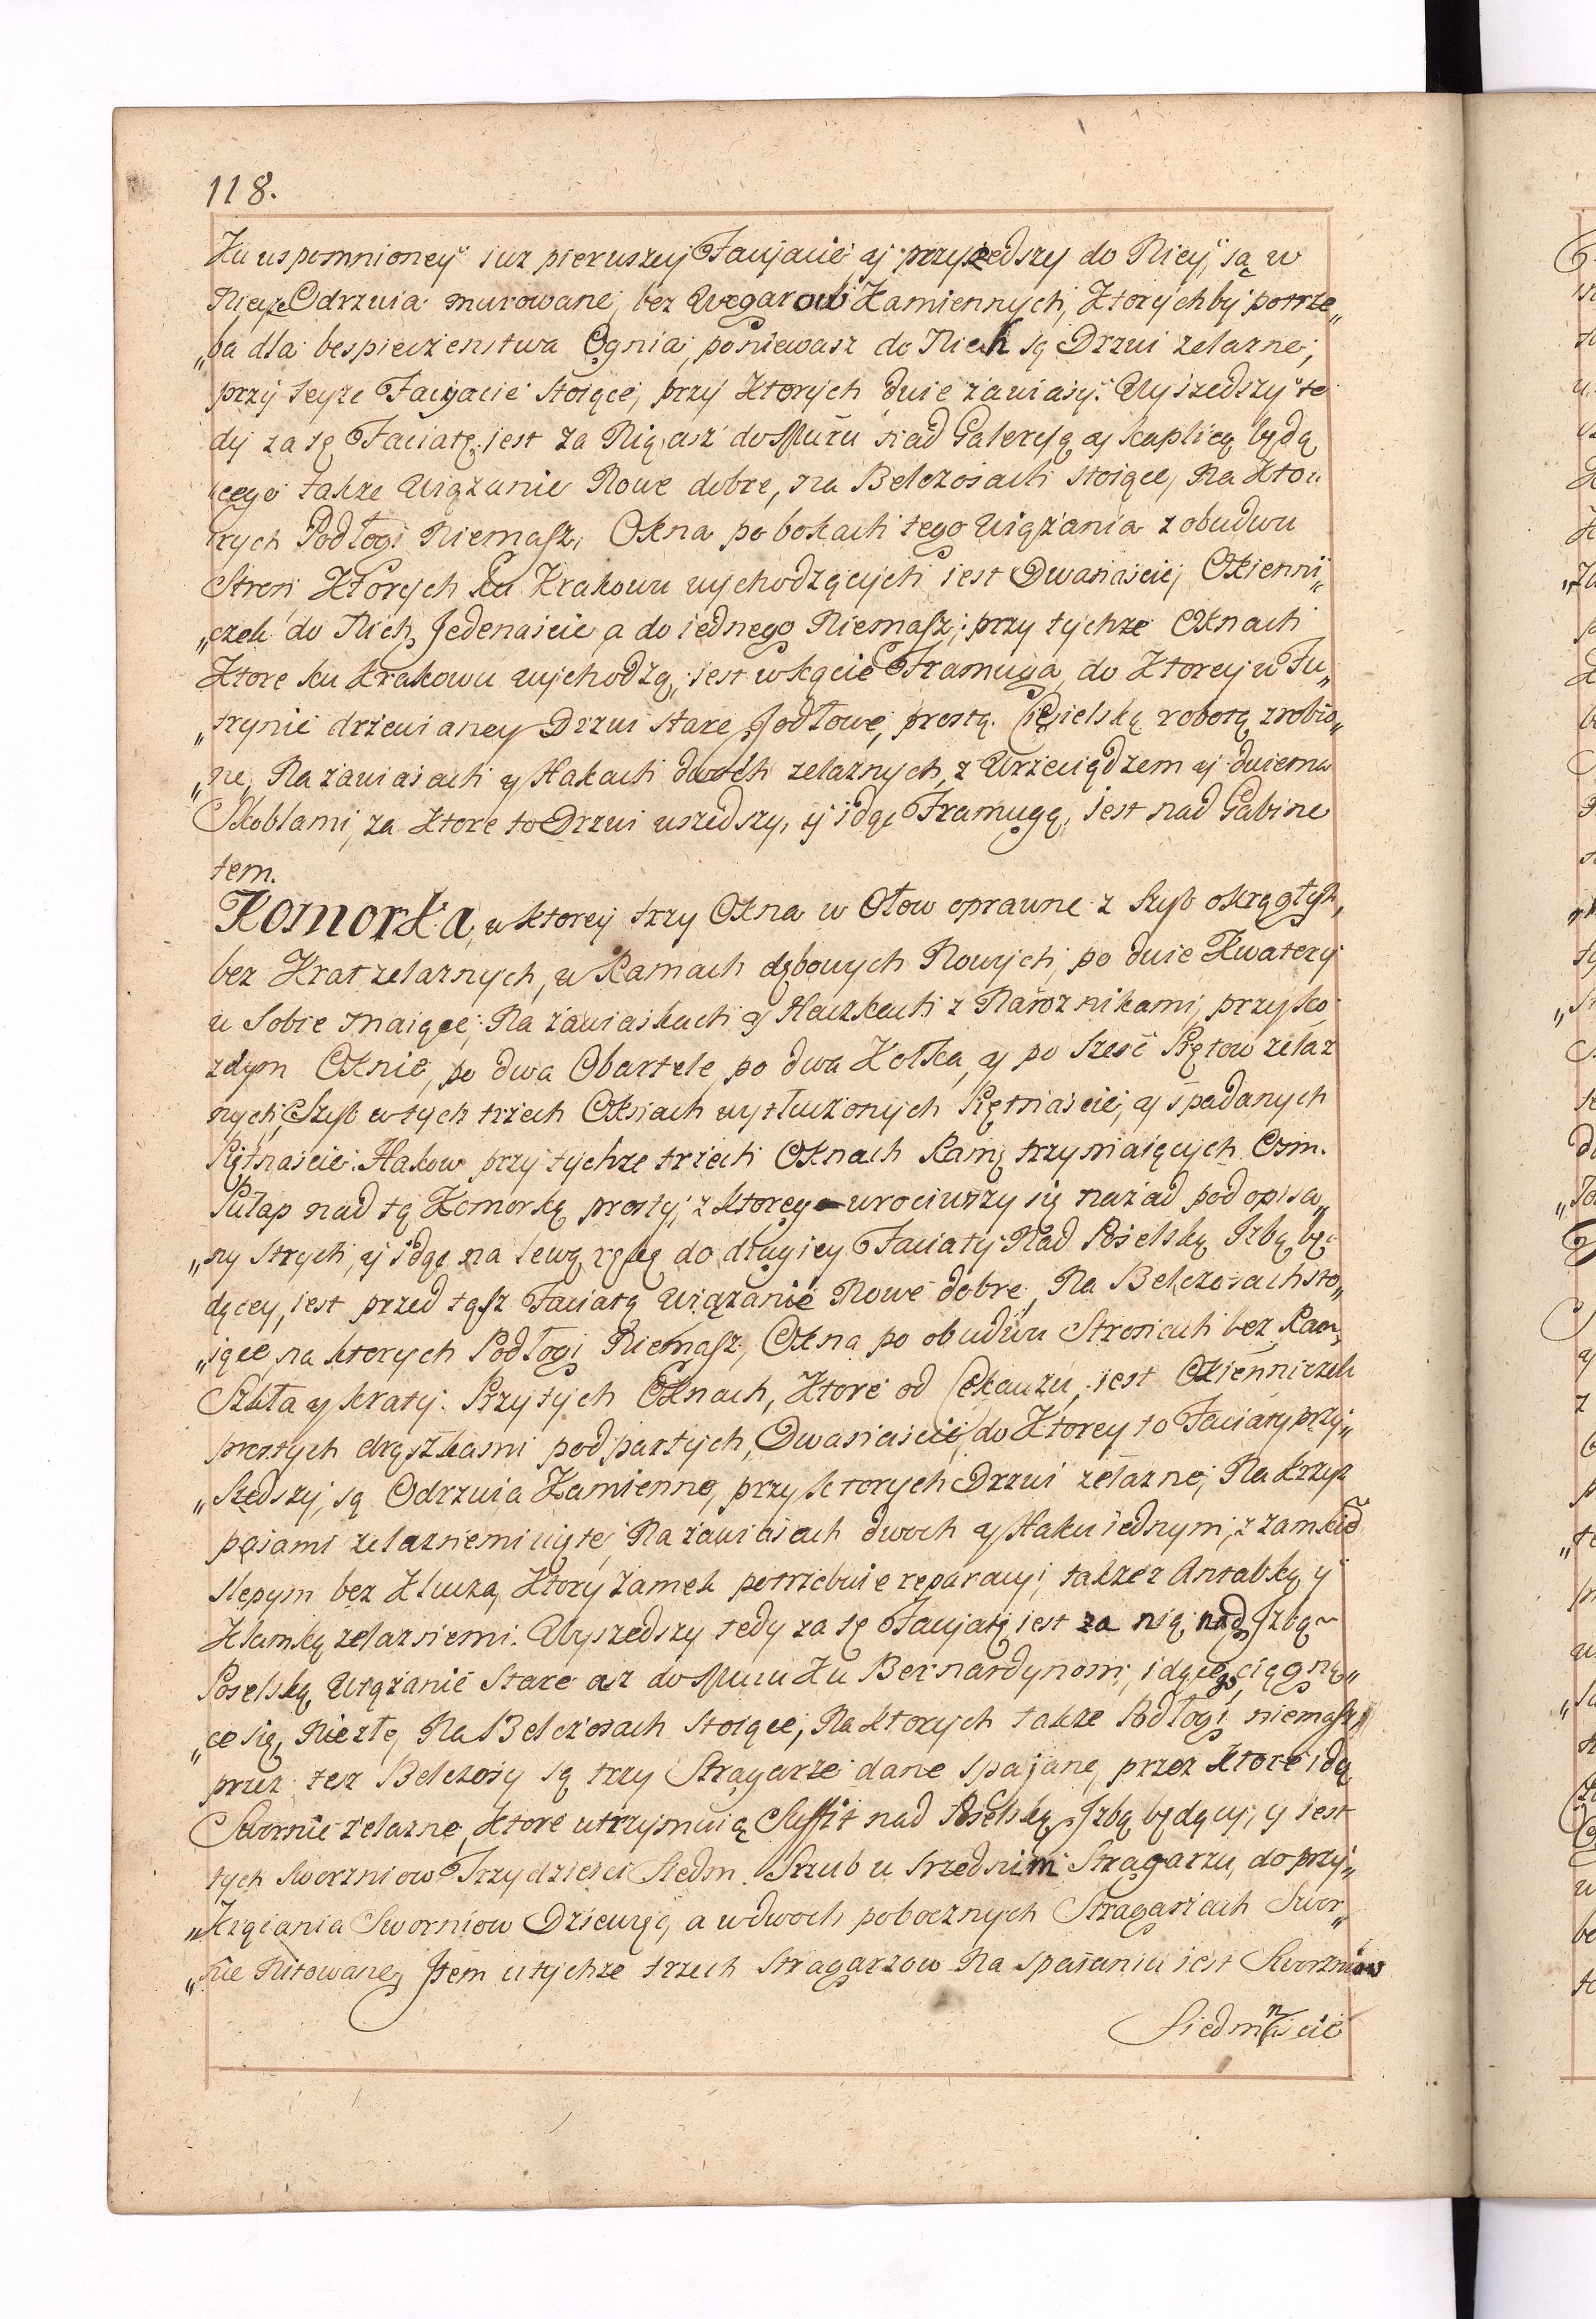 118.
Ku uspomnioney iuz pierwszey Facyacie, y przyszedszy do Niey, są w
Nieyze Odrzwia murowane, bez Węgarow Kamiennych, Ktorychby potrze„
„ba dla bespieczenstwa Ognia, poniewasz do Nich są Drzwi zelazne,
przy teyze Facyacie stoiące, przy Ktorych dwie zawiasy. Wyszedszy te
dy za tę Faciatę, iest za Nią asz do Muru nad Galeryą y kaplicą będą
„cego takze Wiązanie Nowe dobre, na Belczosach stoiące, Na Kto„
rych Podłogi Niemasz, Okna po bokach tego Wiązania z obudwu
Stron Ktorych ku Krakowu wychodzących iest Dwanaście, Okienni„
„czek do Nich Jedenaście, a do iednego Niemasz; przy tychze Oknach
Ktore ku Krakowu wychodzą, iest w kącie Framuga, do Ktorey w Fu„
„trynie drzewianey Drzwi stare Jodłowe, prostą Ciesielską robotą zrobio„
„ne, Na zawiasach y Hakach dwoch zelaznych, z Wrzeciądzem y dwiema
Skoblami, za Ktore to Drzwi wszedszy, y idąc Framugą, iest nad Gabine
tem.
Komorka, w ktorey trzy Okna w Ołow oprawne z Szyb okrągłych,
bez Krat zelaznych, w Ramach dębowych Nowych, po dwie Kwatery
w Sobie maiące, Na zawiaskach y Haczkach z Naroznikami, przy ko
zdym Oknie, po dwa Obartele, po dwa Kołka, y po Szesc Prętow zelaz
nych, Szyb w tych trzech Oknach wytłuczonych Piętnaście, y spadanych
Piętnaście. Hakow przy tychze trzech Oknach Ramy trzymaiących Osm.
Pułap nad tą Komorką prosty, z ktorey wrociwszy się nazad pod opisa„
„ny Strych, y idąc na lewą rękę do drugiey Faciaty Nad Poselską Izbą bę„
dącey, iest przed tąsz Faciatą Wiązanie Nowe dobre, Na Belczosach sto„
„iące na ktorych Podłogi Niemasz, Okna po obudwu Stronach bez Ram,
Szkła y kraty. Przy tych Oknach, Ktore od Cekauzu, iest Okienniczek
prostych drązkami podpartych, Dwanaście, do Ktorey to Faciaty przy„
„szedszy, są Odrzwia Kamienne, przy ktorych Drzwi zelazne, Na krzyz
pasami zelaznemi uięte, Na zawiasach dwoch y Haku iednym, z zamkiē
slepym bez Klucza, Ktory zamek potrzebuie reparacyi, takze z Antabką y
Klamką zelaznemi. Wyszedszy tedy za tę Facyatę iest za nią nad Izbą
Poselską Wiązanie Stare asz do Muru Ku Bernardynom idącego ciągną„
„ce się, Niezłe, Na Belczosach stoiące, Na ktorych takze Podłogi niemasz,
przez tesz Belczosy są trzy Stragarze dane spajane, przez ktore idą
Swornie zelazne, ktore utrzymuią Suffit nad Poselską Izbą będący, y iest
tych sworzniow Trzydziesci Siedm. Szrub w srzednim Stragarzu, do przy„
„Kręcania Sworniow Dziewięć, a w dwoch pobocznych Stragarzach Swor„
„nie Nitowane, Item u tychze trzech Stragarzow Na spaianiu iest Sworzniow
Siedmnaście